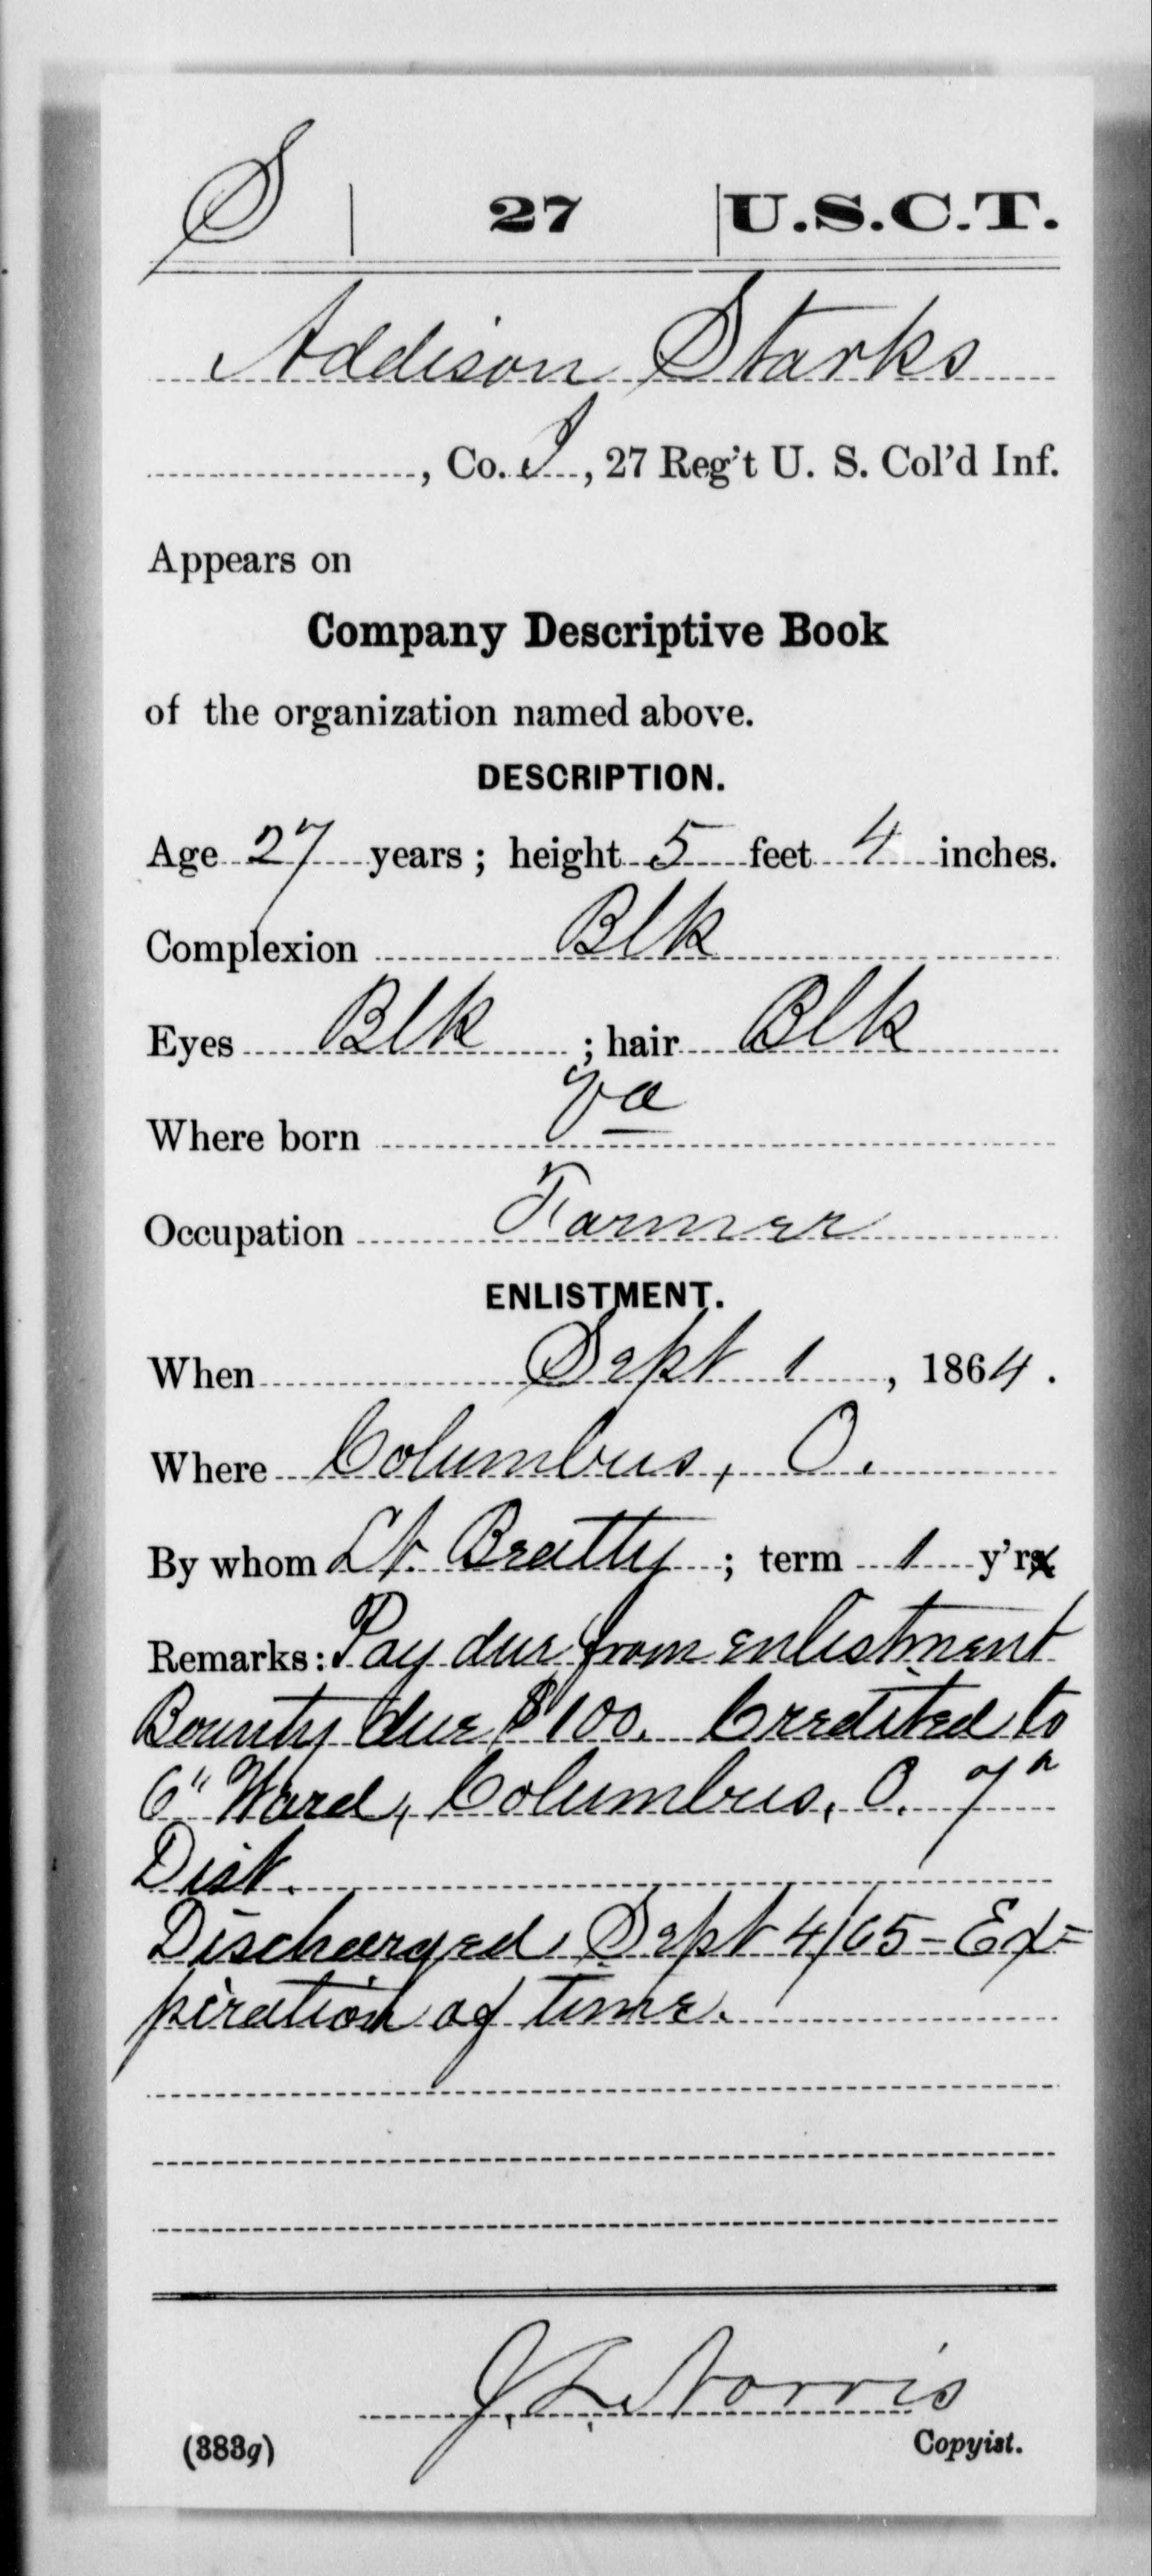 S | 27 | U.S.C.T.
Addison Starks
, Co. I, 27 Reg't U. S. Col'd Inf.
Appears on
Company Descriptive Book
of the organization named above.
DESCRIPTION.
Age 27 years; height 5 feet 4 inches.
Complexion Blk
Eyes Blk; hair Blk
Where born Va
Occupation Farmer
ENLISTMENT.
When Sept 1, 1864.
Where Columbus, O.
By whom Lt. Beatty; term 1 y'rs
Remarks: Pay due from enlistment
Bounty due $100. Credited to
6" Ward, Columbus, O. 7"
Dist.
Discharged Sept 4/65 - Ex=
piration of time.
J. L. Norris
(383g) Copyist.